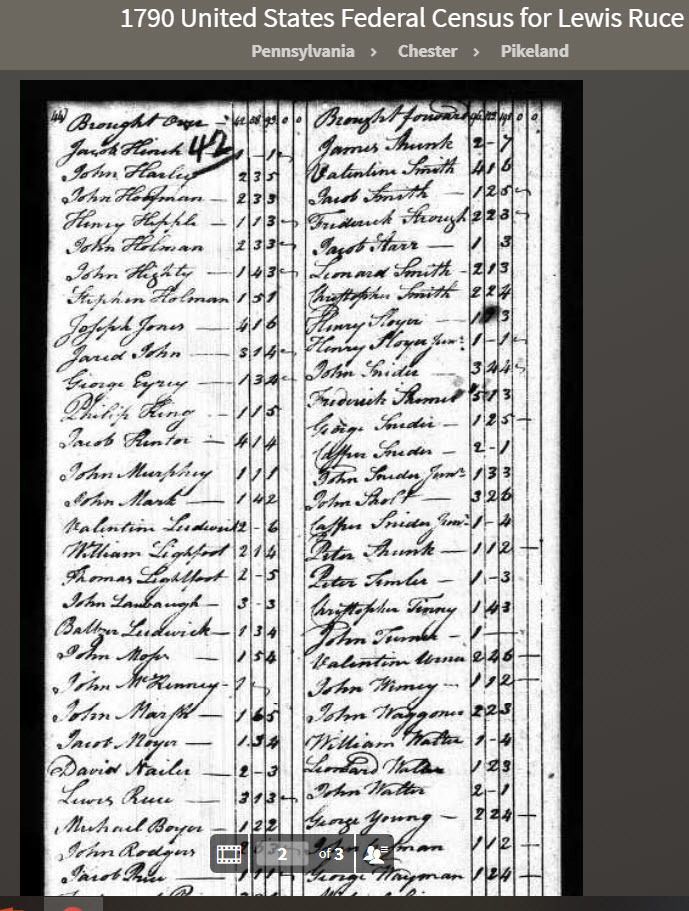 1790 United States Federal Census for Lewis Ruce
Pennsylvania > Chester > Pikeland
44)
Brought Over
42
John Harley 2 3 5
John Hoofman 2 3 3
Henry Hipple 1 1 3
John Holman 2 3 3
John Highty 1 4 3
Stephen Holman 1 5 1
Joseph Jones 4 1 6
Jared John 3 1 4
George Eyrey 1 3 4
Philip King 1 1 5
Jacob 4 1 4
John Murphey 1 1 1
John Mark 1 4 2
Valentine Ludwick 2 - 6
William Lightfoot 2 1 4
Thomas Lightfoot 2 - 5
John Lambaugh 3 - 3
Balzer Ludwick 1 3 4
John Moses 1 5 4
John McKinney 1
John Marsh 1 6 5
Jacob Moyer 1 3 4
David Nailer 2 - 3
Lewis Ruce 3 1 3
Michael Boyer 1 2 2
John Rodgers
Jacob 1 1 1
Brought forward
James Shunk 2 - 7
Valentine Smith 4 1 6
Jacob Smith 1 2 5
Frederick Strough 2 2 3
Jacob Starr 1 3
Leonard Smith 2 1 3
Christopher Smith 2 2 4
Henry Sloyer 1 3
Henry Sloyer Junr 1 - 1
John Snider 3 4 4
Frederick 5 1 3
George Snider 1 2 5
Casper Snider 2 - 1
John Snider Junr 1 3 3
John Sholt 3 2 6
Casper Snider Junr 1 - 4
Peter Shunk 1 1 2
Peter Simler 1 - 3
Christopher Tinney 1 4 3
John Turner 1
Valentine 2 4 6
John Winey 1 1 2
John Waggoner 2 2 3
William Walter 1 - 4
Leonard Walter 1 2 3
John Walter 2 - 1
George Young 2 2 4
1 1 2
George Wayman 1 2 4
2 of 3